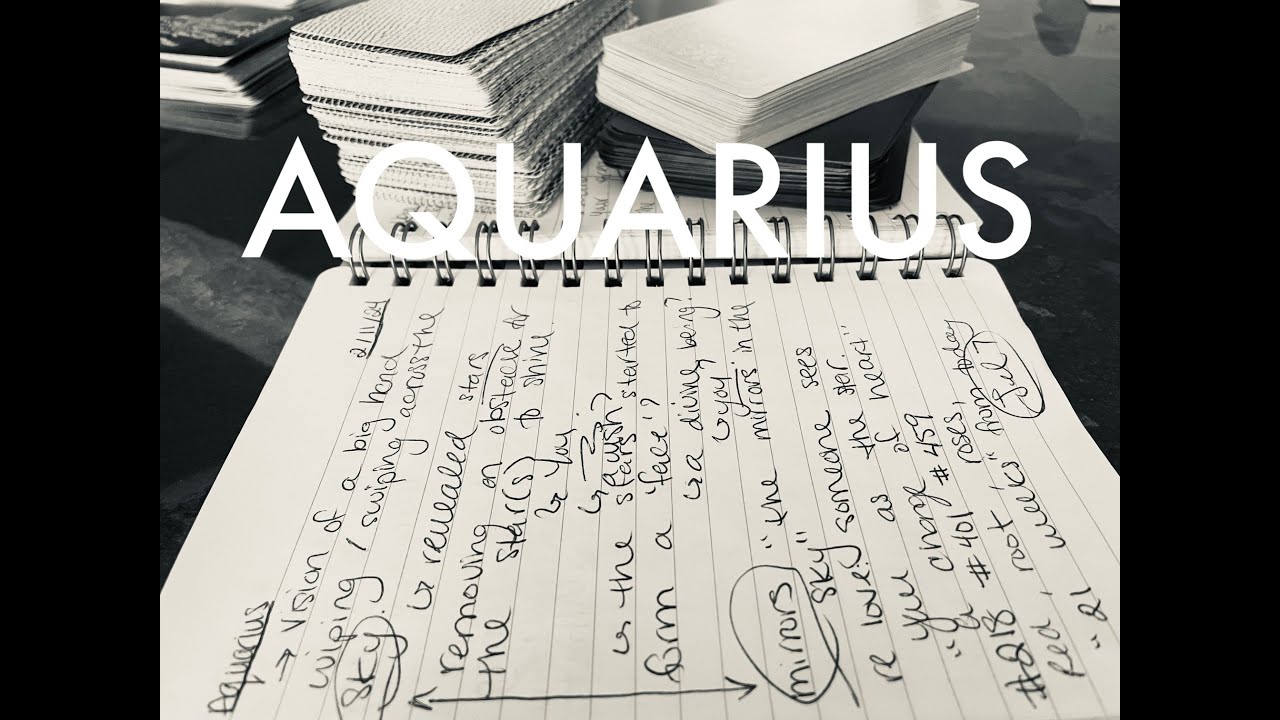 AQUARIUS
Aquarius 2/11/24
→ Vision of a big hand
wiping / swiping across the
sky.
↳ revealed stars
removing an obstacle for
the star(s) to shine
↳ you
↳ 3?
squish?
↳ the stars started to
form a "face"?
↳ a divine being?
↳ you
mirrors "the mirrors in the
sky"
re love: someone sees
you as the star.
"a change of heart"
#218 #401 #459
Red, root, roses,
"21 weeks" from today
July